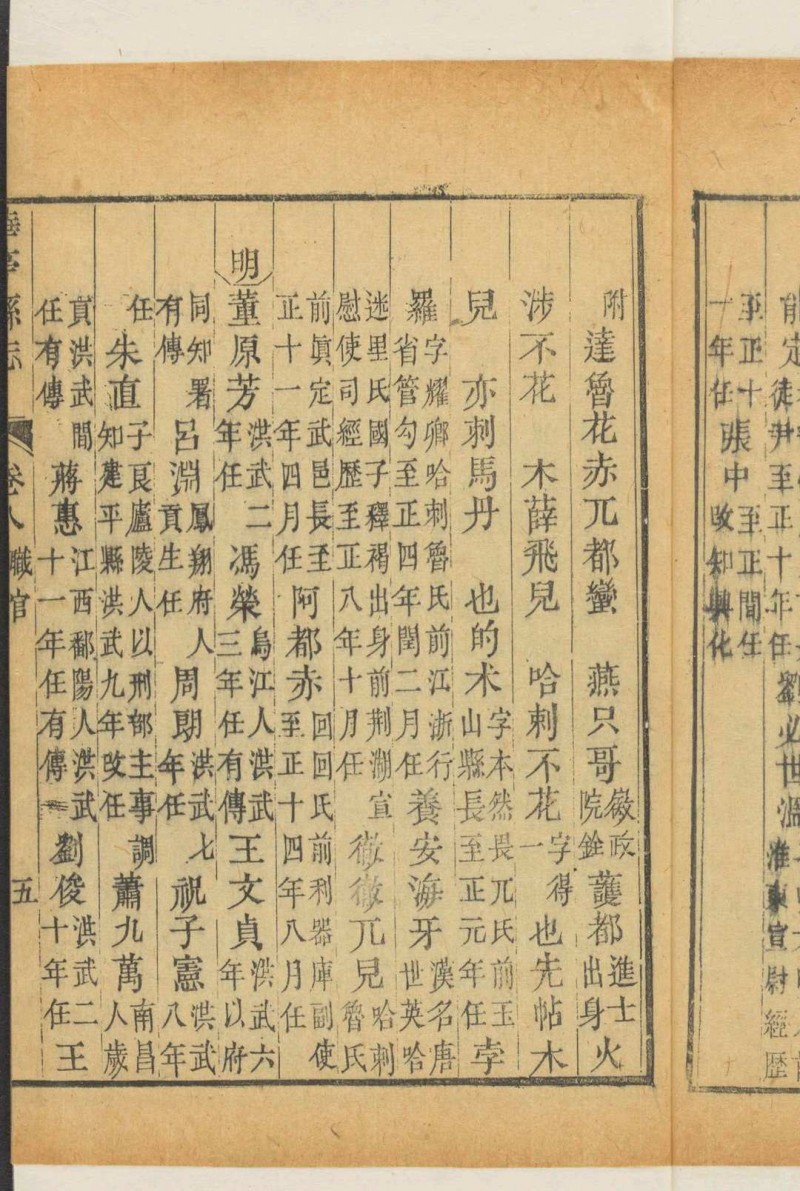 徒尹至正十年任 劉必世
淮東宣尉經歷
正十一年任 張中 至正間任改知興化
附 達魯花赤兀都蠻 燕只哥 徽政院銓 護都 進士出身 火
涉不花 木薛飛兒 哈剌不花 字得一 也先帖木
兒 亦刺馬丹 也的术 字本然畏兀氏前玉山縣長至正元年任 孛
羅 字耀卿哈刺魯氏前江浙行省管勾至正四年閏二月任 養安海牙 漢名唐世英哈
迷里氏國子釋褐出身前荆湖宣慰使司經歷至正八年十月任 徹徹兀兒 哈刺魯氏
前眞定武邑長至正十一年四月任 阿都赤 回回氏前利器庫副使至正十四年八月任
明 董原芳 洪武二年任 馮榮 烏江人洪武三年任有傳 王文貞 洪武六年以府
同知署有傳 呂淵 鳳翔府人貢生任 周朗 洪武七年任 祝子憲 洪武八年
任 朱直 子良廬陵人以刑部主事調知建平縣洪武九年改任 蕭九萬 南昌人歲
貢洪武間任有傳 蔣惠 江西鄱陽人洪武十一年任有傳 劉俊 洪武二十年任 王
華亭縣志 卷八 職官 五